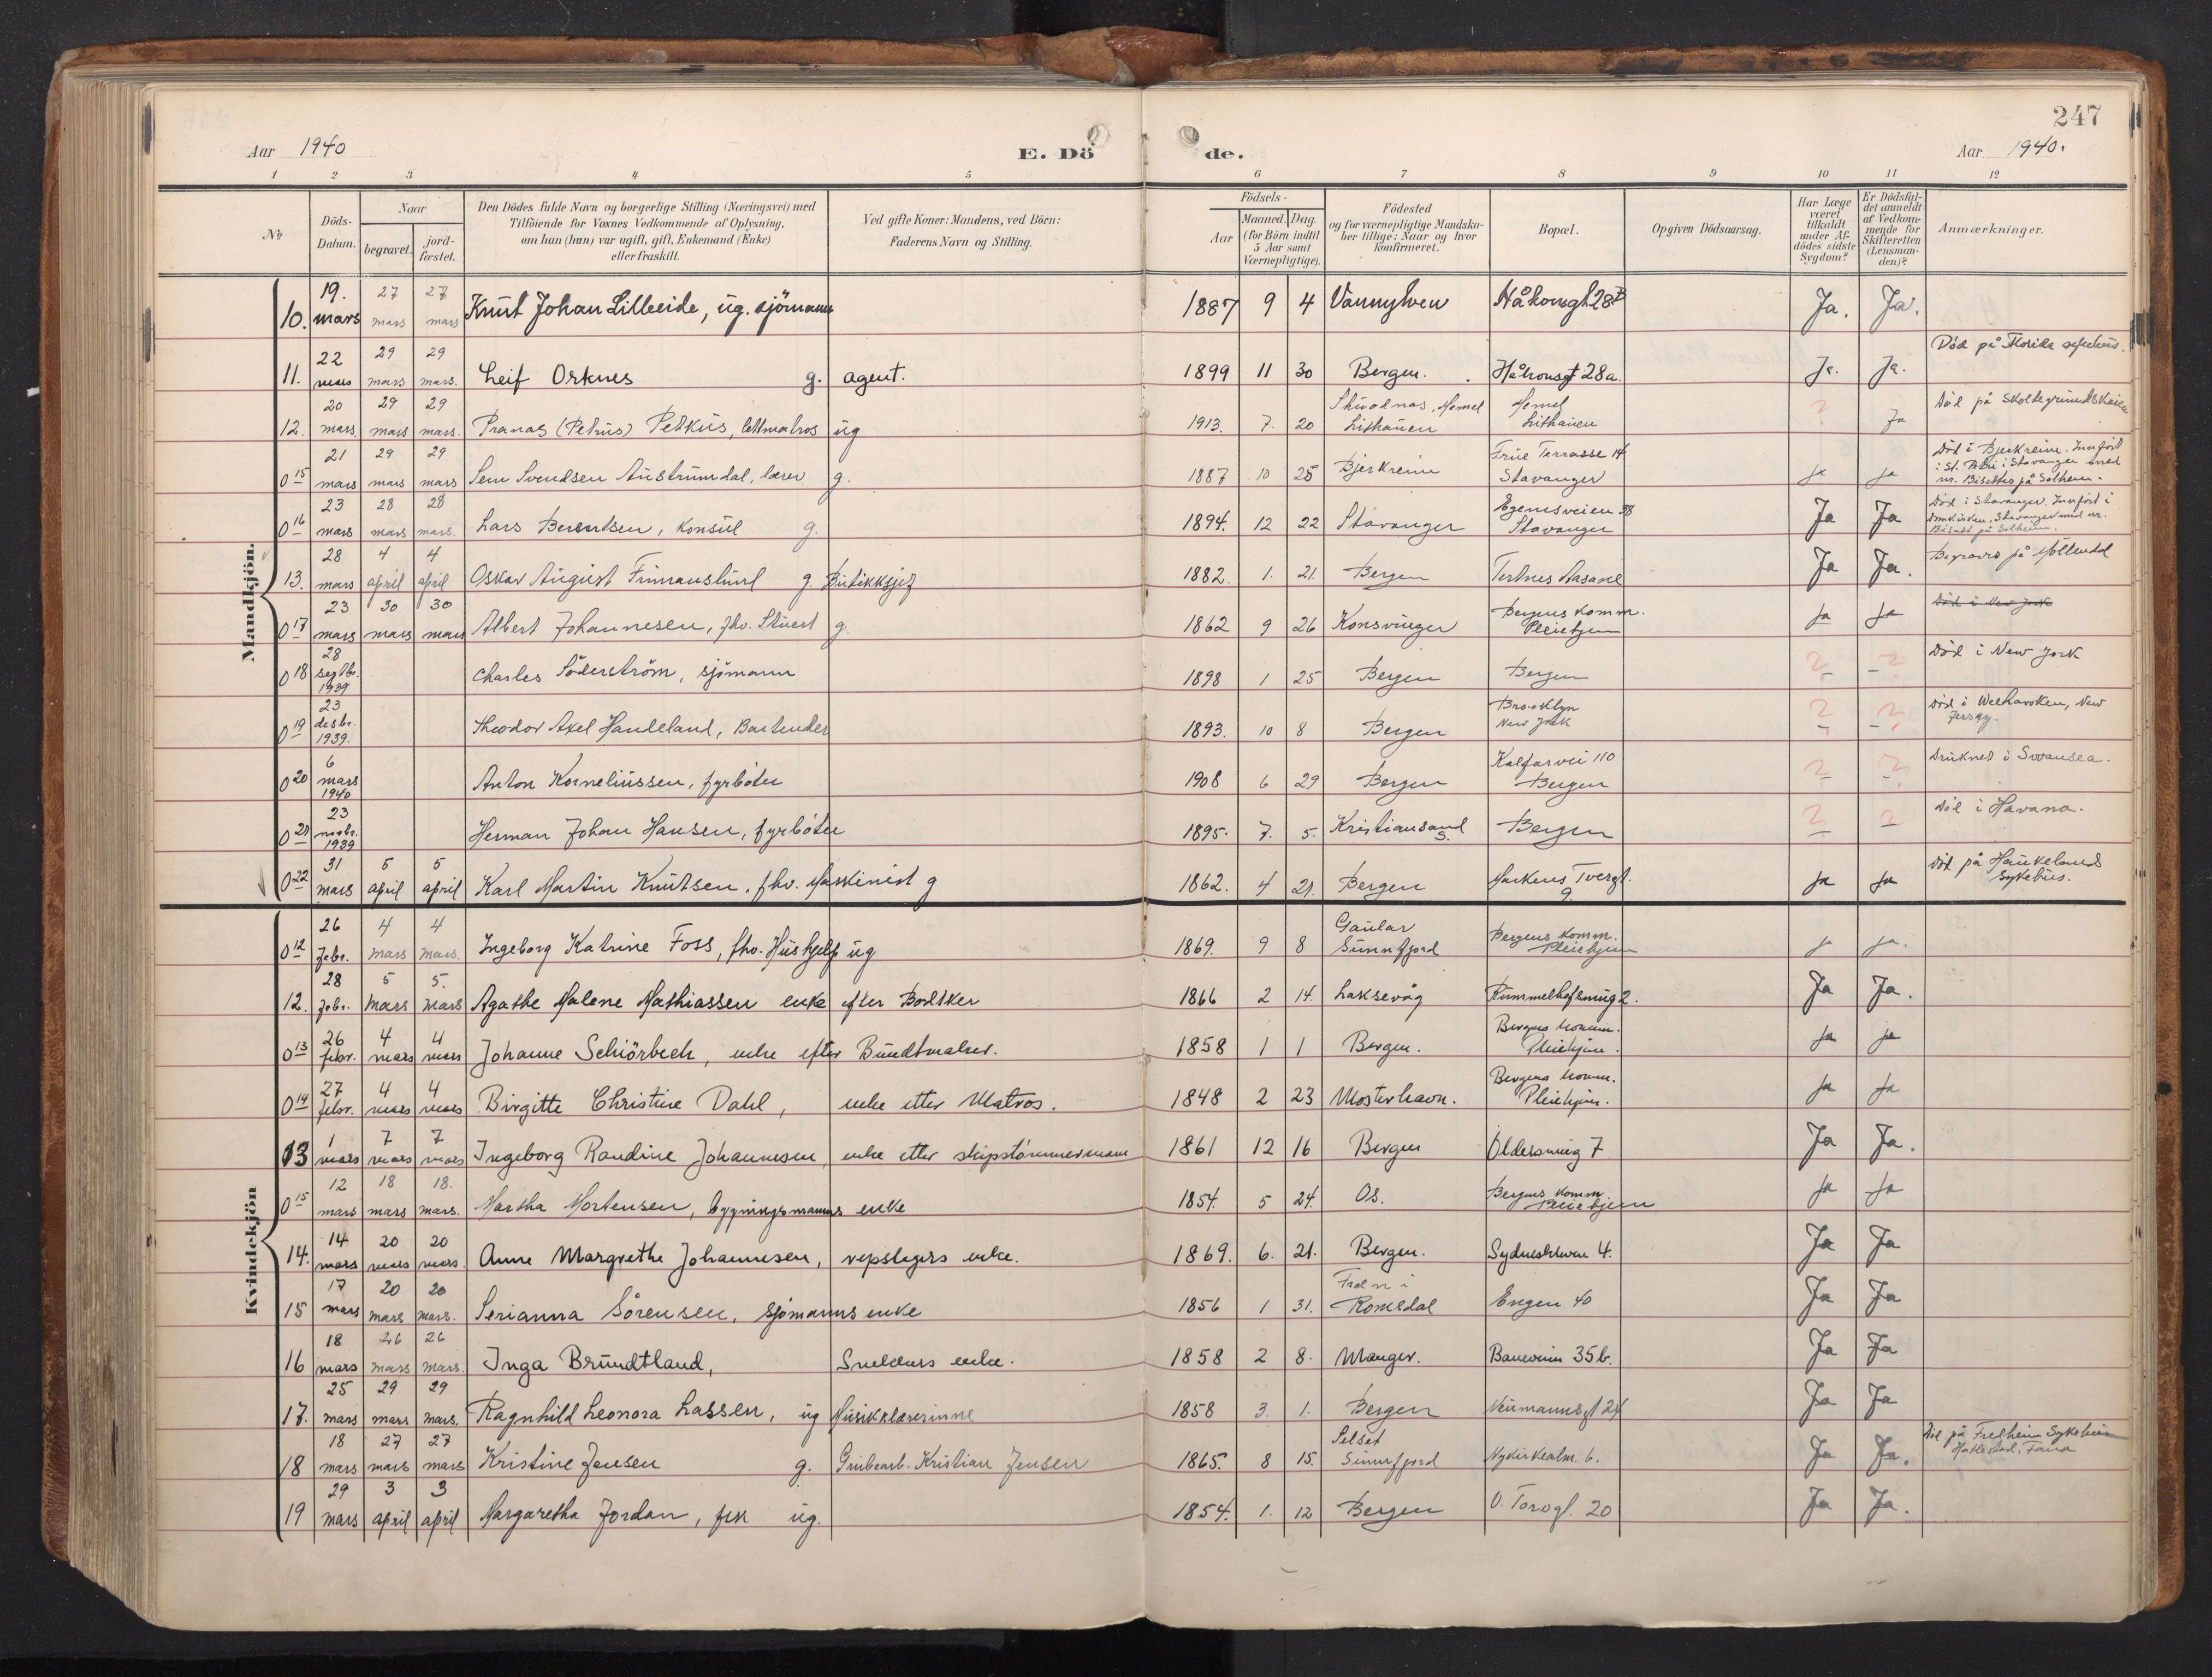 247
Aar 1940 E. Dö de. Aar 1940.
1 2 3 4 5 6 7 8 9 10 11 12
№ Döds-Datum. Naar begravet. jord-fæstet. Den Dödes fulde Navn og borgerlige Stilling (Næringsvei) med Tilföiende for Voxnes Vedkommende af Oplysning, om han (hun) var ugift, gift, Enkemand (Enke) eller fraskilt. Ved gifte Koner: Mandens, ved Börn: Faderens Navn og Stilling. Födsels- Aar Maaned. Dag. (for Börn indtil 5 Aar samt Værnepligtige). Födested og for værnepligtige Mandskaber tillige: Naar og hvor konfirmeret. Bopæl. Opgiven Dödsaarsag. Har Læge været tilkaldt under Afdödes sidste Sygdom? Er Dödsfaldet anmeldt af Vedkommende for Skifteretten (Lensmanden)? Anmærkninger.
Mandkjön.
10. 19. mars 27 mars 27 mars Knut Johan Lilleeide, ug. sjömann 1887 9 4 Vannylven Håkonsgt 28B Ja. Ja.
11. 22 mars 29 mars 29 mars. Leif Orknes g. agent. 1899 11 30 Bergen. Håkonsgt 28a. Ja. Ja. Död på Florida sykehus.
12. 20 mars 29 mars 29 mars. Pranas (Petrus) Petkus, lettmatros ug 1913. 7. 20 Memel Lithauen Memel Lithauen ? Ja Död på Skoltegrundskaien
0 15 21 mars 29 mars 29 mars Sem Svendsen Austrumdal, lærer g. 1887 10 25 Bjerkreim Frue Terrasse 14 Stavanger Ja Ja Död i Bjerkreim. Innfört i St. Petri i Stavanger med nr. Bisettes på Solheim.
0 16 23 mars 28 mars 28 mars. Lars Berentsen, Konsul g. 1894. 12 22 Stavanger Egenesveien 38 Stavanger Ja Ja Död i Stavanger. Innfört i Domkirken, Stavanger med nr. Bisatt på Solheim.
13. 28 mars 4 april 4 april Oskar August Finnanslund g. Butikksjef 1882. 1. 21. Bergen Tertnes Aasane Ja Ja. Begraves på Möllendal
0 17 23 mars 30 mars 30 mars Albert Johannesen, fhv. Stuert g. 1862 9 26 Konsvinger Bergens Komm. Pleiehjem Ja Ja Död i New York
0 18 28 septbr. 1939 Charles Söderström, sjömann 1898 1 25 Bergen Bergen ? ? Död i New York
0 19 23 desbr. 1939. Theodor Axel Handeland, Bartender 1893. 10 8 Bergen Brooklyn New York ? ? Död i Weehawken, New Jersey.
0 20 6 mars 1940 Anton Korneliussen, fyrböter 1908 6 29 Bergen Kalfarvei 110 Bergen ? ? Druknet i Swansea.
0 21 23 novbr. 1939 Herman Johan Hansen, fyrböter 1895. 7. 5. Kristiansand S. Bergen ? ? Död i Havana.
0 22 31 mars 5 april 5 april Karl Martin Knutsen, fhv. Maskinist g 1862. 4 21. Bergen Markens Tvergt. 9 Ja Ja Död på Haukelands sykehus.
Kvindekjön
0 12 26 febr. 4 mars 4 mars. Ingeborg Katrine Foss, fhv. Hushjelp ug 1869. 9 8 Gaular Sunnfjord Bergens Komm. Pleiehjem Ja Ja.
12. 28 febr. 5 mars 5. mars Agathe Malene Mathiassen enke efter Bödtker 1866 2 14. Laksevåg Rummelhofsmug 2. Ja Ja.
0 13 26 febr. 4 mars 4 mars Johanne Schiörbech, enke efter Bundtmaker. 1858 1 1 Bergen. Bergens Komm. Pleiehjem. Ja Ja
0 14 27 febr. 4 mars 4 mars Birgitte Christine Dahl, enke etter Matros. 1848 2 23 Mosterhavn. Bergens Komm. Pleiehjem. Ja Ja
13 1 mars 7 mars 7 mars Ingeborg Randine Johannesen, enke etter skipstömmermann 1861 12 16 Bergen Oldersmug 7 Ja Ja.
0 15 12 mars 18 mars 18. mars. Martha Mortensen, bygningsmanns enke 1854. 5 24. Os. Bergens Komm Pleiehjem Ja Ja
14. 14 mars 20 mars 20 mars. Anne Margrethe Johannesen, repslagers enke. 1869. 6. 21. Bergen. Sydneskleven 4. Ja Ja
15 17 mars 20 mars 20 mars. Serianna Sörensen, sjömanns enke 1856 1 31. Fræn i Romsdal Engen 40 Ja Ja
16 18 mars 26 mars 26 mars. Inga Brundtland, Snekkers enke. 1858 2 8. Manger. Baneveien 35b. Ja Ja
17. 25 mars 29 mars 29 mars. Ragnhild Leonora Lassen, ug Musikklærerinne 1858 3. 1. Bergen Neumannsgt 24 Ja Ja
18 18 mars 27 mars 27 mars Kristine Jensen g. Grubearb. Kristian Jensen 1865. 8 15. Selset Sunnfjord Nykirkealm. 6. Ja Ja. Död på Fredheim Sykehus Hatlestad, Fana
19 29 mars 3 april 3 april Margaretha Jordan, frk ug. 1854. 1. 12 Bergen Ö. Torvgt. 20 Ja Ja.